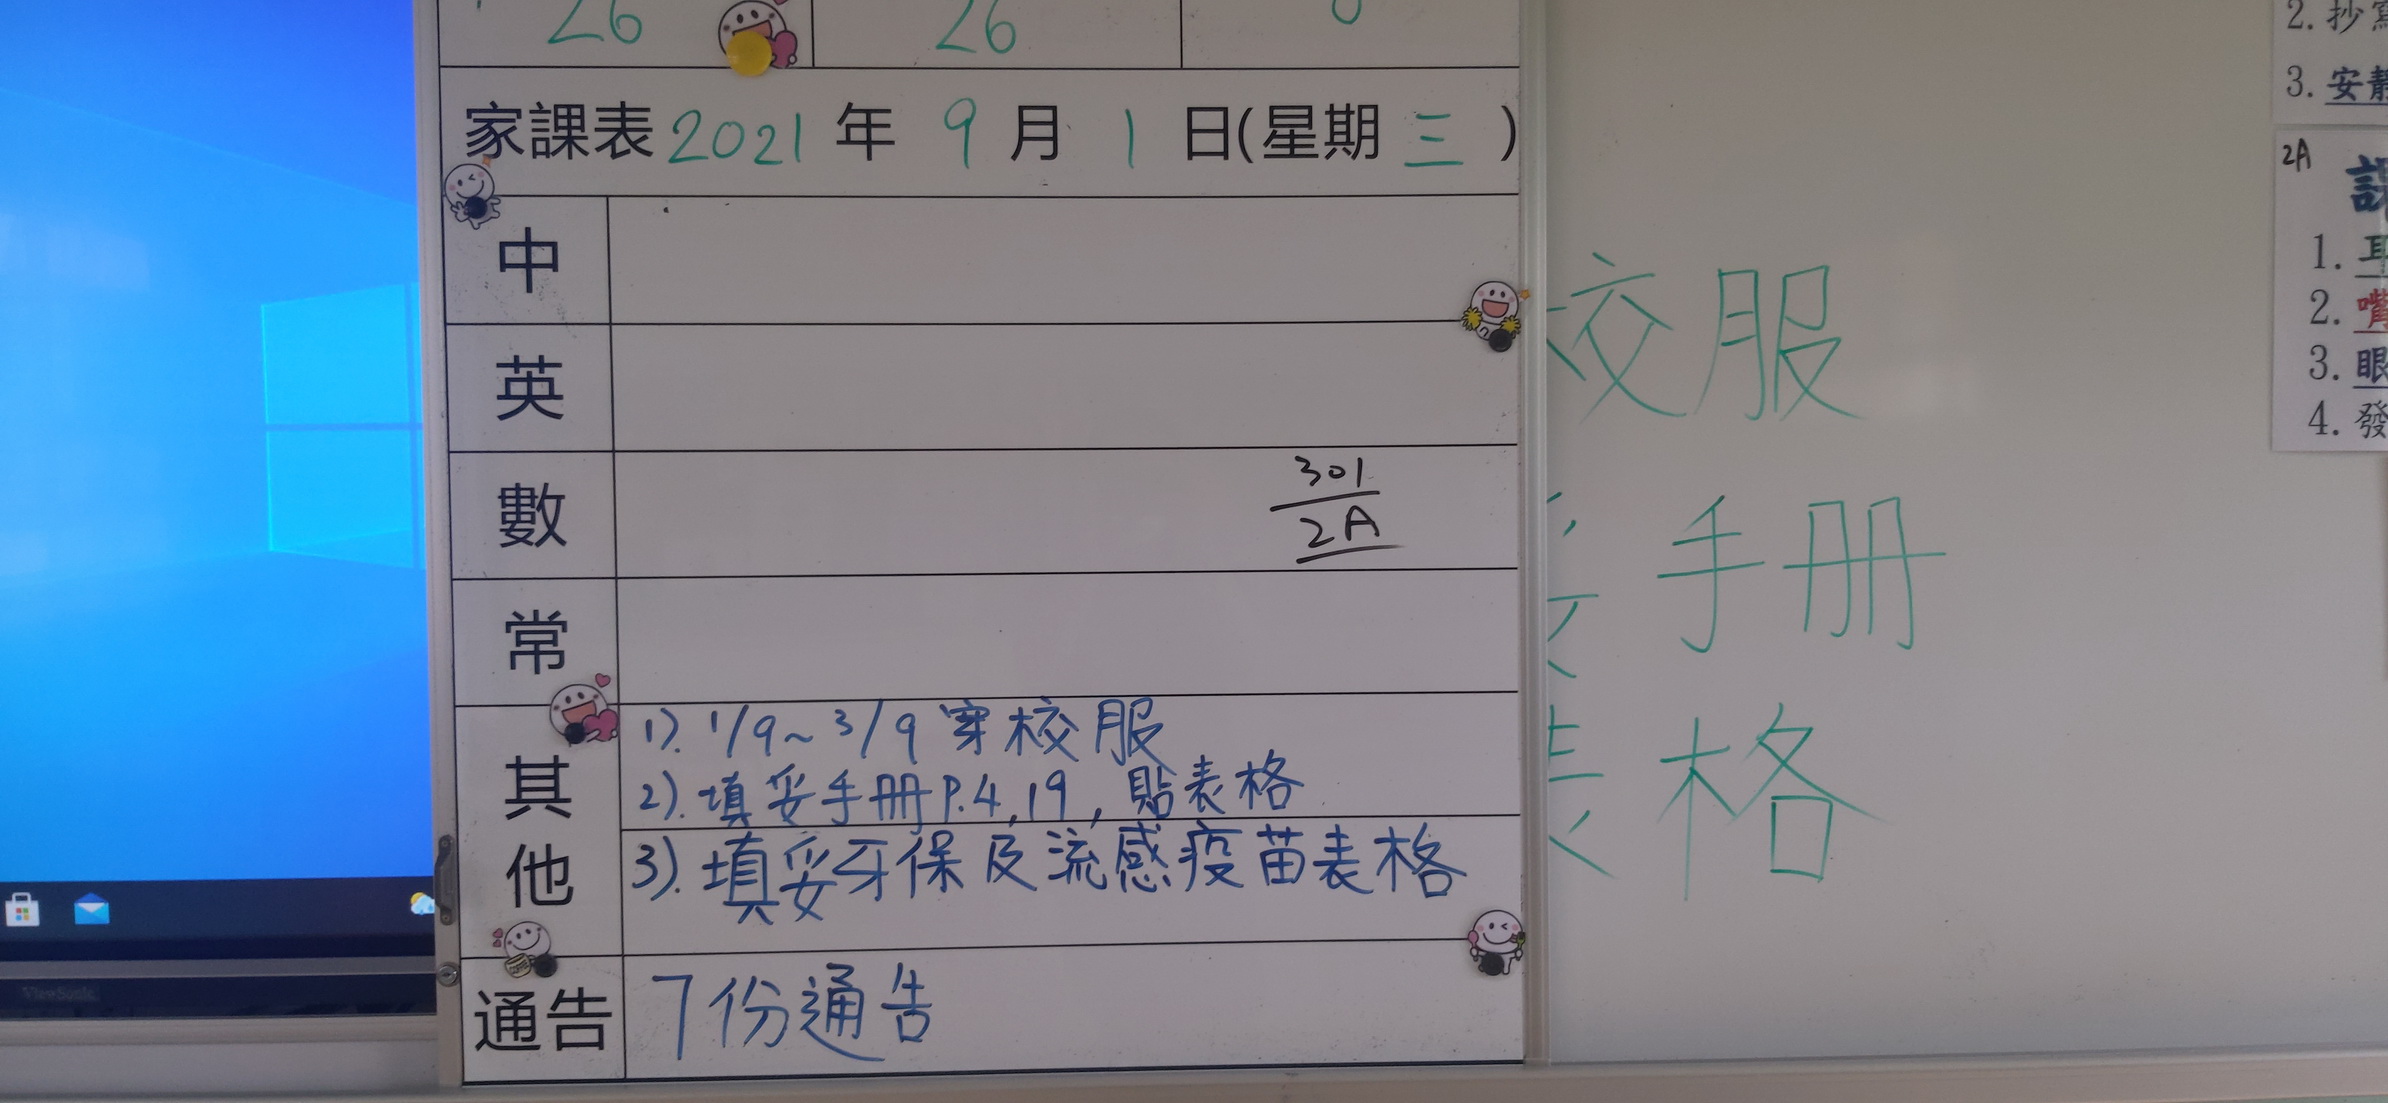 26 26 0
家課表 2021 年 9 月 1 日(星期 三 )
中
英
數
301
2A
常
其他
1). 1/9~3/9 穿校服
2). 填妥手册P.4,19, 貼表格
3). 填妥牙保及流感疫苗表格
通告
7份通告
ViewSonic
校服
手册
表格
2. 抄寫
3. 安靜
2A
課
1. 耳
2. 嘴
3. 眼
4. 發